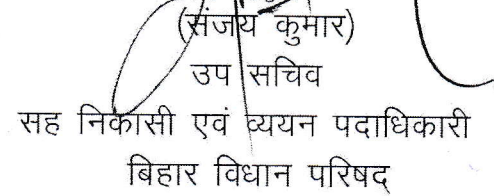 (संजय कुमार)
उप सचिव
सह निकासी एवं व्ययन पदाधिकारी
बिहार विधान परिषद्